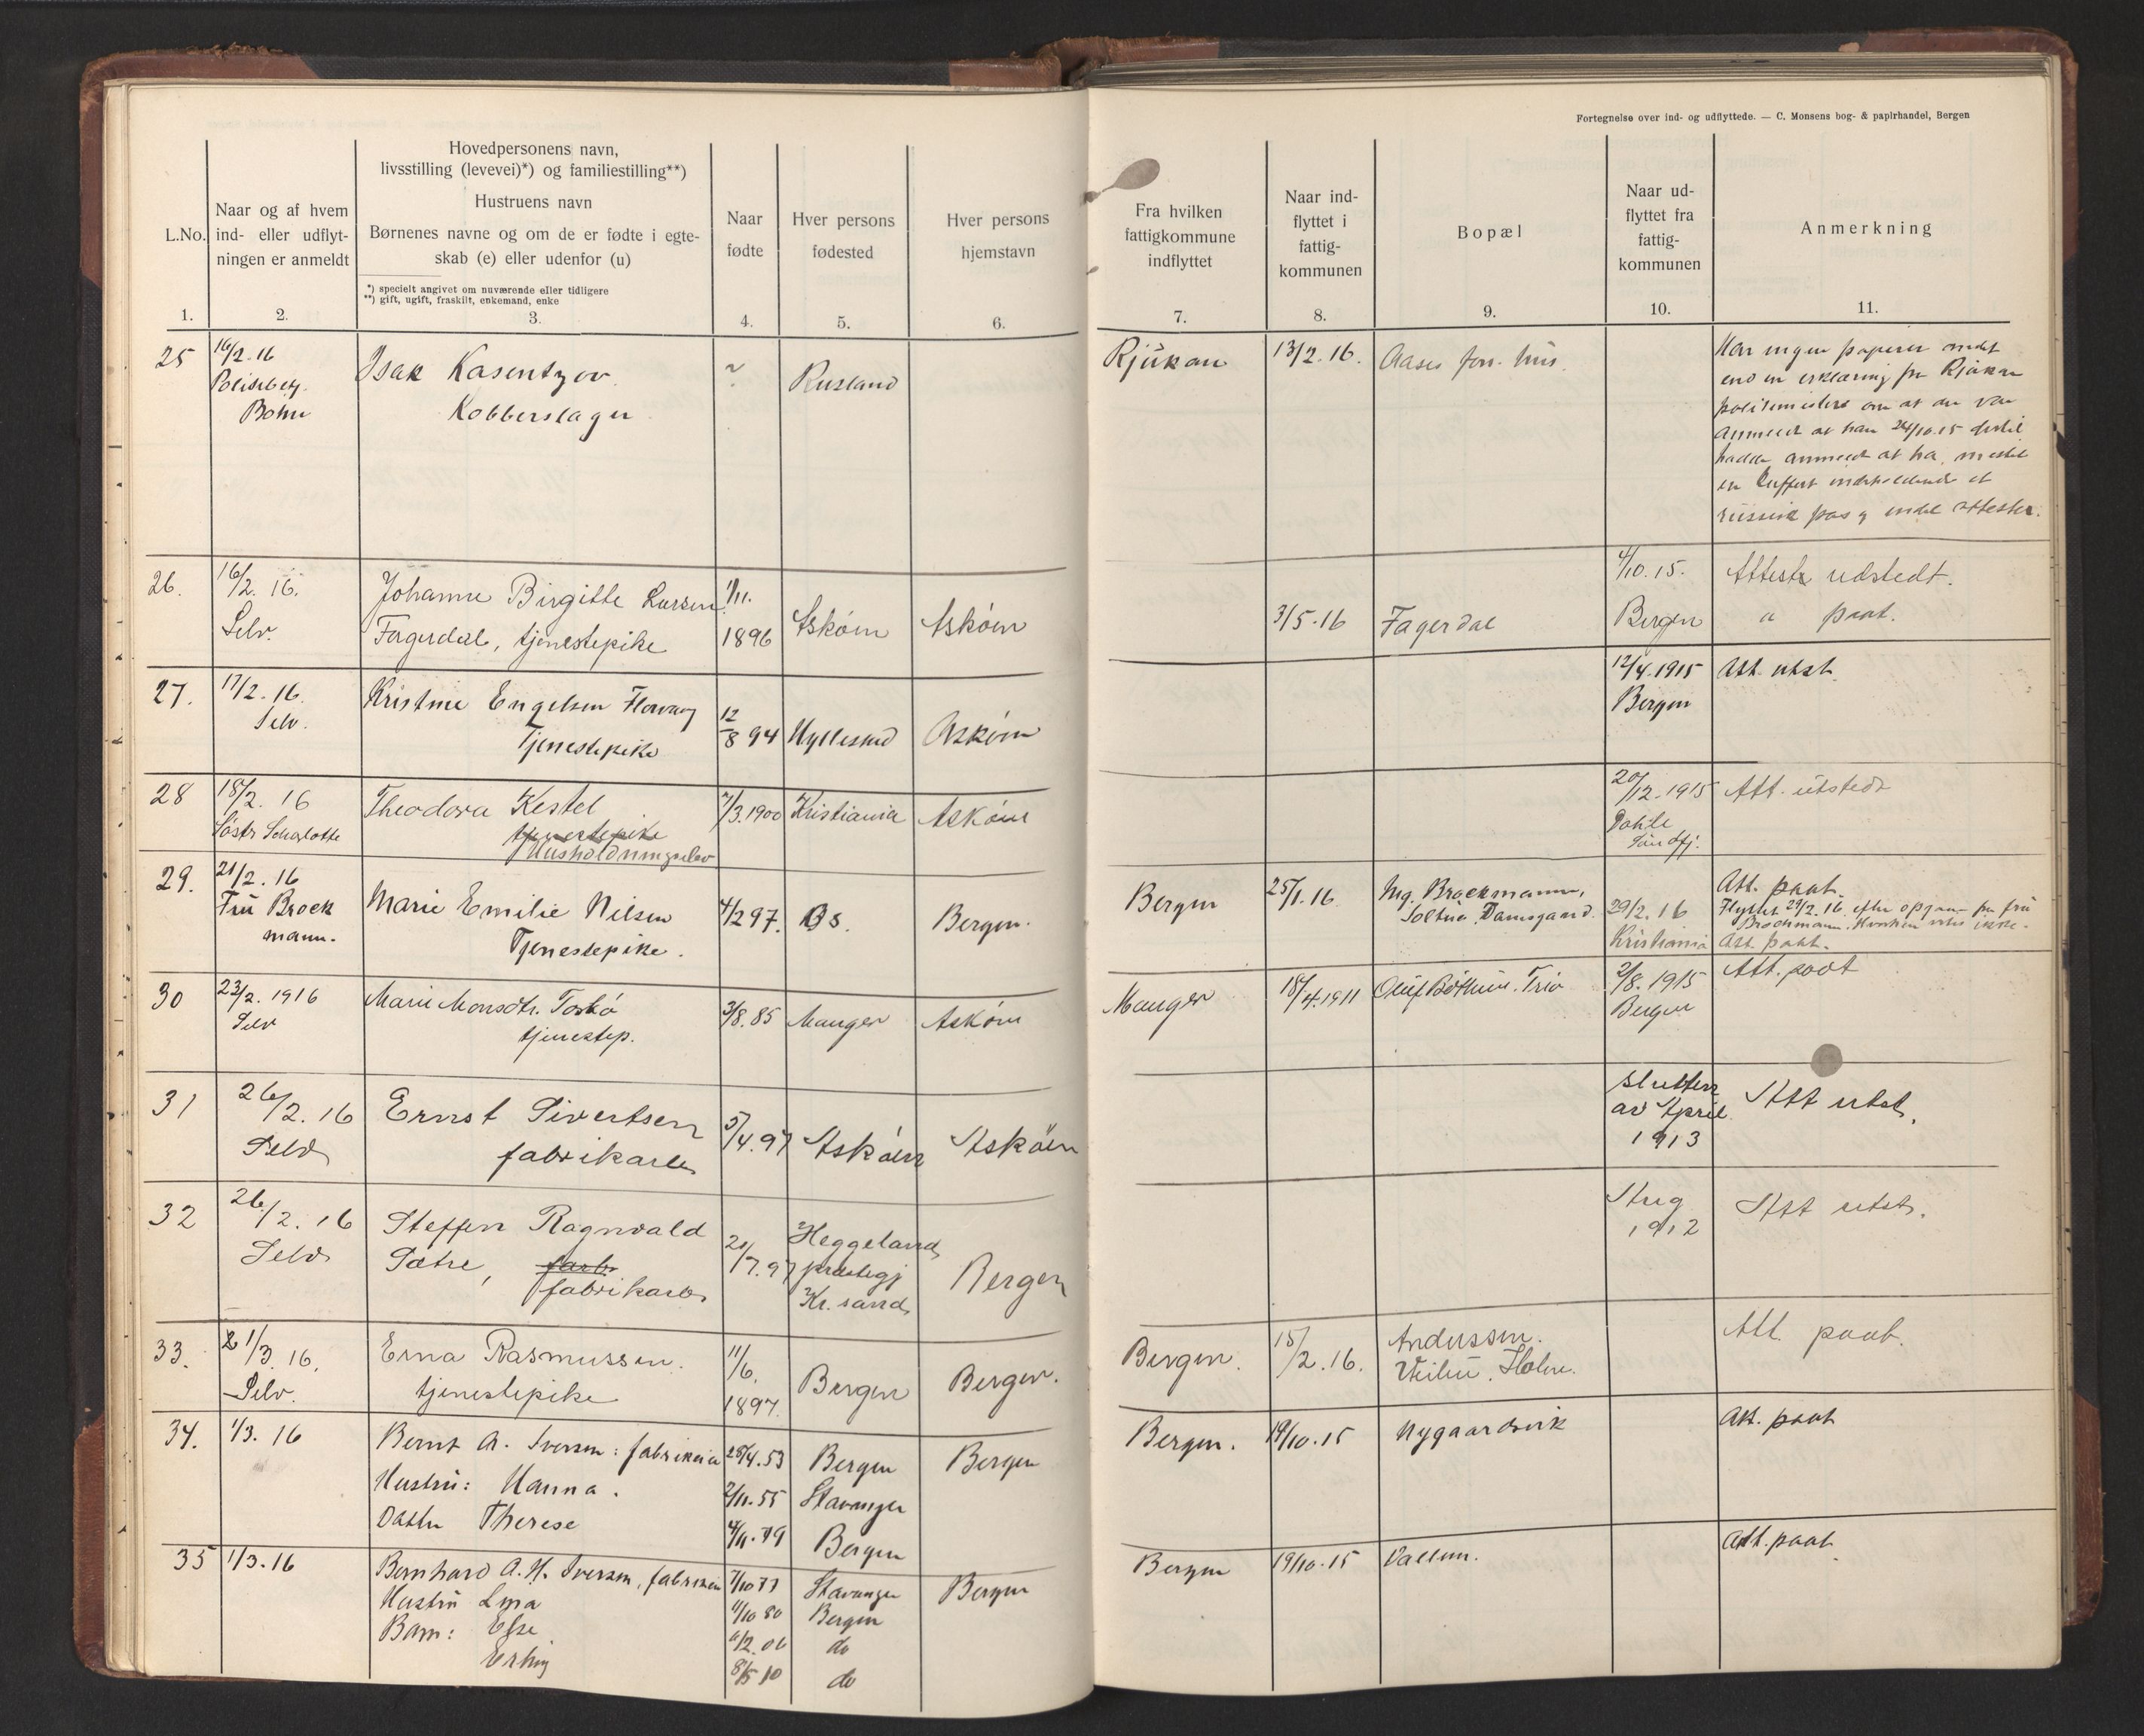 Fortegnelse over ind- og udflyttede. — C. Monsens bog- & papirhandel, Bergen
L.No.
1.
Naar og af hvem
ind- eller udflyt-
ningen er anmeldt
2.
Hovedpersonens navn,
livsstilling (levevei)*) og familiestilling**)
Hustruens navn
Børnenes navne og om de er fødte i egte-
skab (e) eller udenfor (u)
*) specielt angivet om nuværende eller tidligere
**) gift, ugift, fraskilt, enkemand, enke
3.
Naar
fødte
4.
Hver persons
fødested
5.
Hver persons
hjemstavn
6.
Fra hvilken
fattigkommune
indflyttet
7.
Naar ind-
flyttet i
fattig-
kommunen
8.
Bopæl
9.
Naar ud-
flyttet fra
fattig-
kommunen
10.
Anmerkning
11.
25
16/2.16
Politibetj.
Bohn
Isak Kasentzov
Kobberslager
?
Rusland
Rjukan
13/2.16.
Aases hus.
Har ingen papirer andet
end en erklæring fra Rjukan
politimester om at
anmeldt at han 24/10.15
hadde anmeldt at ha mistet
en kuffert indeholdende et
russisk pas og endel attester.
26.
16/2. 16.
Selv.
Johanne Birgitte Larsen
Fagerdal, tjenestepike
1/11.
1896
Askøen
Askøen
3/5.16
Fagerdal
4/10.15.
Bergen
Attest udstedt.
" paat.
27.
17/2. 16.
Selv.
Kristine Engelsen Florvaag
Tjenestepike
12/8 94
Hyllestad
Askøen
12/4.1915
Bergen
Att. utst.
28
18/2. 16
Søstr Scharlotte
Theodora Kestel
tjenestepike
Husholdningselev
7/3.1900
Kristiania
Askøen
20/12.1915
Dahle
Søndfj.
Att. utstedt
29.
21/2.16
Fru Brock
mann.
Marie Emilie Nilsen
Tjenestepike.
4/2 97.
Os.
Bergen.
Bergen
25/1.16.
Ing. Brockmann,
Solhus, Damsgaard.
29/2.16
Kristiania
Att. paat.
Flyttet 29/2.16. efter opgave fra fru
Brockmann. Hvorhen vites ikke.
Att. paat.
30
23/2. 1916
Selv
Marie Monsdtr. Toskø
tjenestep.
3/8.85
Manger
Askøen
Manger
18/4.1911
Oluf Bøthun. Trio
2/8.1915
Bergen
Att. paat
31
26/2.16
Selv
Ernst Sivertsen
fabrikarb
5/4.97
Askøen
Askøen
slutten
av April
1913
Att utst.
32
26/2.16
Selv
Steffen Ragnvald
Sætre, farb.
fabrikarb
21/7.97
Heggeland
præstegj
Kr. sand
Bergen
Aug
1912
Att utst.
33.
1/3.16.
Selv.
Erna Rasmussen.
tjenestepike
11/6.
1897
Bergen
Bergen.
Bergen.
15/2.16.
Anderssen.
Holen.
Att. paat.
34.
1/3. 16
Bernt A. Iversen: fabrikeier
Hustru: Hanna.
Datter Therese
28/4.53
2/11.55
4/11.79
Bergen
Stavanger
Bergen
Bergen
Bergen.
19/10.15
Nygaardsvik
Att. paat
35
1/3.16
Bernhard A. H. Iversen, fabrikeier
Hustru Lina
Barn: Else
Erling
7/10 77
11/10 80
6/2.06
8/5 10
Stavanger
Bergen
do
do
Bergen
Bergen
19/10.15
Vallum.
Att. paat